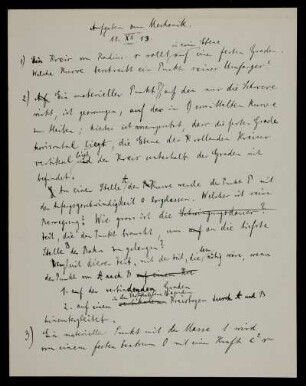 Aufgaben zur Mechanik.
11. XII 13.
in einer Ebene
1) Ein Kreis vom Radius r rollt auf einer festen Geraden.
Welche Kurve beschreibt ein Punkt seines Umfanges?
2) Ein materieller Punkt P, auf den nur die Schwere
wirkt, ist gezwungen, auf der in 1) ermittelten Kurve
zu bleiben; hierbei ist vorausgesetzt, dass die feste Gerade
horizontal liegt, die Ebene des rollenden Kreises
vertikal liegt und der Kreis unterhalb der Geraden sich
befindet.
In einer Stelle A der Kurve werde der Punkt P mit
der Anfangsgeschwindigkeit 0 losgelassen. Welches ist seine
Bewegung? Wie gross ist die
Zeit, die der Punkt braucht, um an die tiefste
Stelle B der Bahn zu gelangen?
Vergleiche diese Zeit mit der Zeit, die nötig wäre, wenn
der Punkt von A nach B
1. auf der verbindenden Geraden
2. auf einem Kreisbogen durch A und B
hinuntergleitet.
3) Ein materieller Punkt mit der Masse 1 wird
von einem festen Zentrum O mit einer Kraft k² r